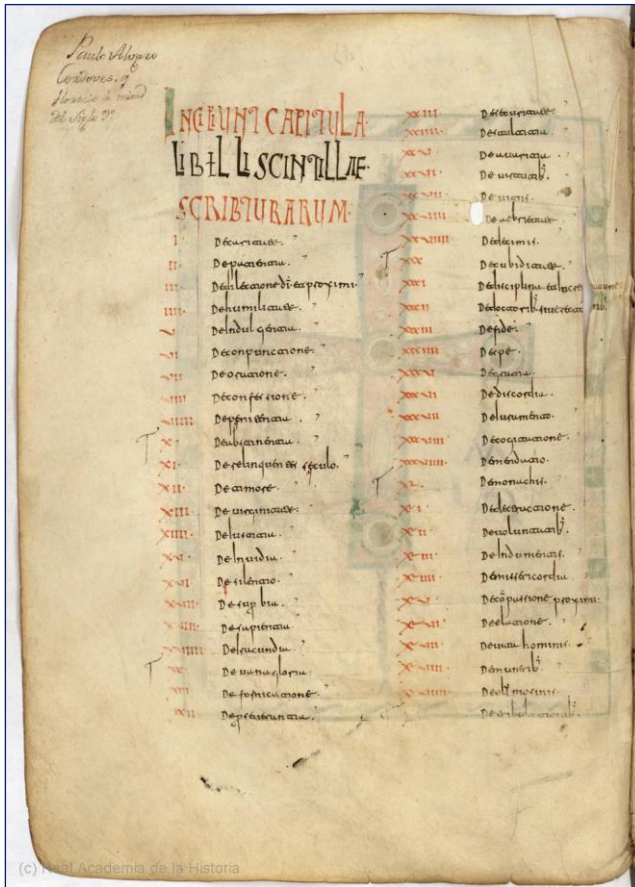 Paulo Alvaro
Cordoves, q
floreció à mitad
del Siglo 9º
INCIPIUNT CAPITULA
LIBELLI SCINTILLAE
SCRIBTURARUM
I De caritate
II De patientia
III De dilectione di et proximi
IIII De humilitate
De indulgentia
VI De conpunctione
VII De oratione
VIII De confessione
VIIII De penitentia
X De abstinentia
XI De relinquentes seculo
XII De timore
XIII De virginitate
XIIII De iustitia
XV De invidia
XVI De silentio
XVII De superbia
XVIII De sapientia
XVIIII De iracundia
XX De vana gloria
XXI De fornicatione
XXII De perseverantia
XXIII De securitate
XXIIII De stultitia
XXV De avaritia
XXVI De virtutib
XXVII De vitiis
XXVIII De ebrietate
XXVIIII De decimis
XXX De cupiditate
XXXI De disciplina et increpatione
XXXII De doctorib sive rectorib
XXXIII De fide
XXXIIII De spe
XXXV De gratia
XXXVI De discordia
XXXVII De iuramento
XXXVIII De cogitatione
XXXVIIII De mendacio
XL De monachis
XLI De detractione
XLII De voluntatib
XLIII De indumentis
XLIIII De misericordia
XLV De cōpassione proximi
XLVI De elatione
XLVII De vita hominis
XLVIII De munerib
XLVIIII De elemosinis
De tribulationib
(c) Real Academia de la Historia